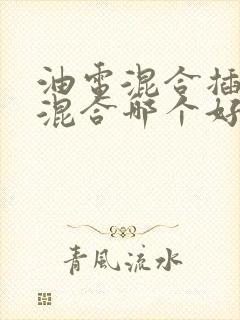 油電混合插
混合哪个好
青風流水